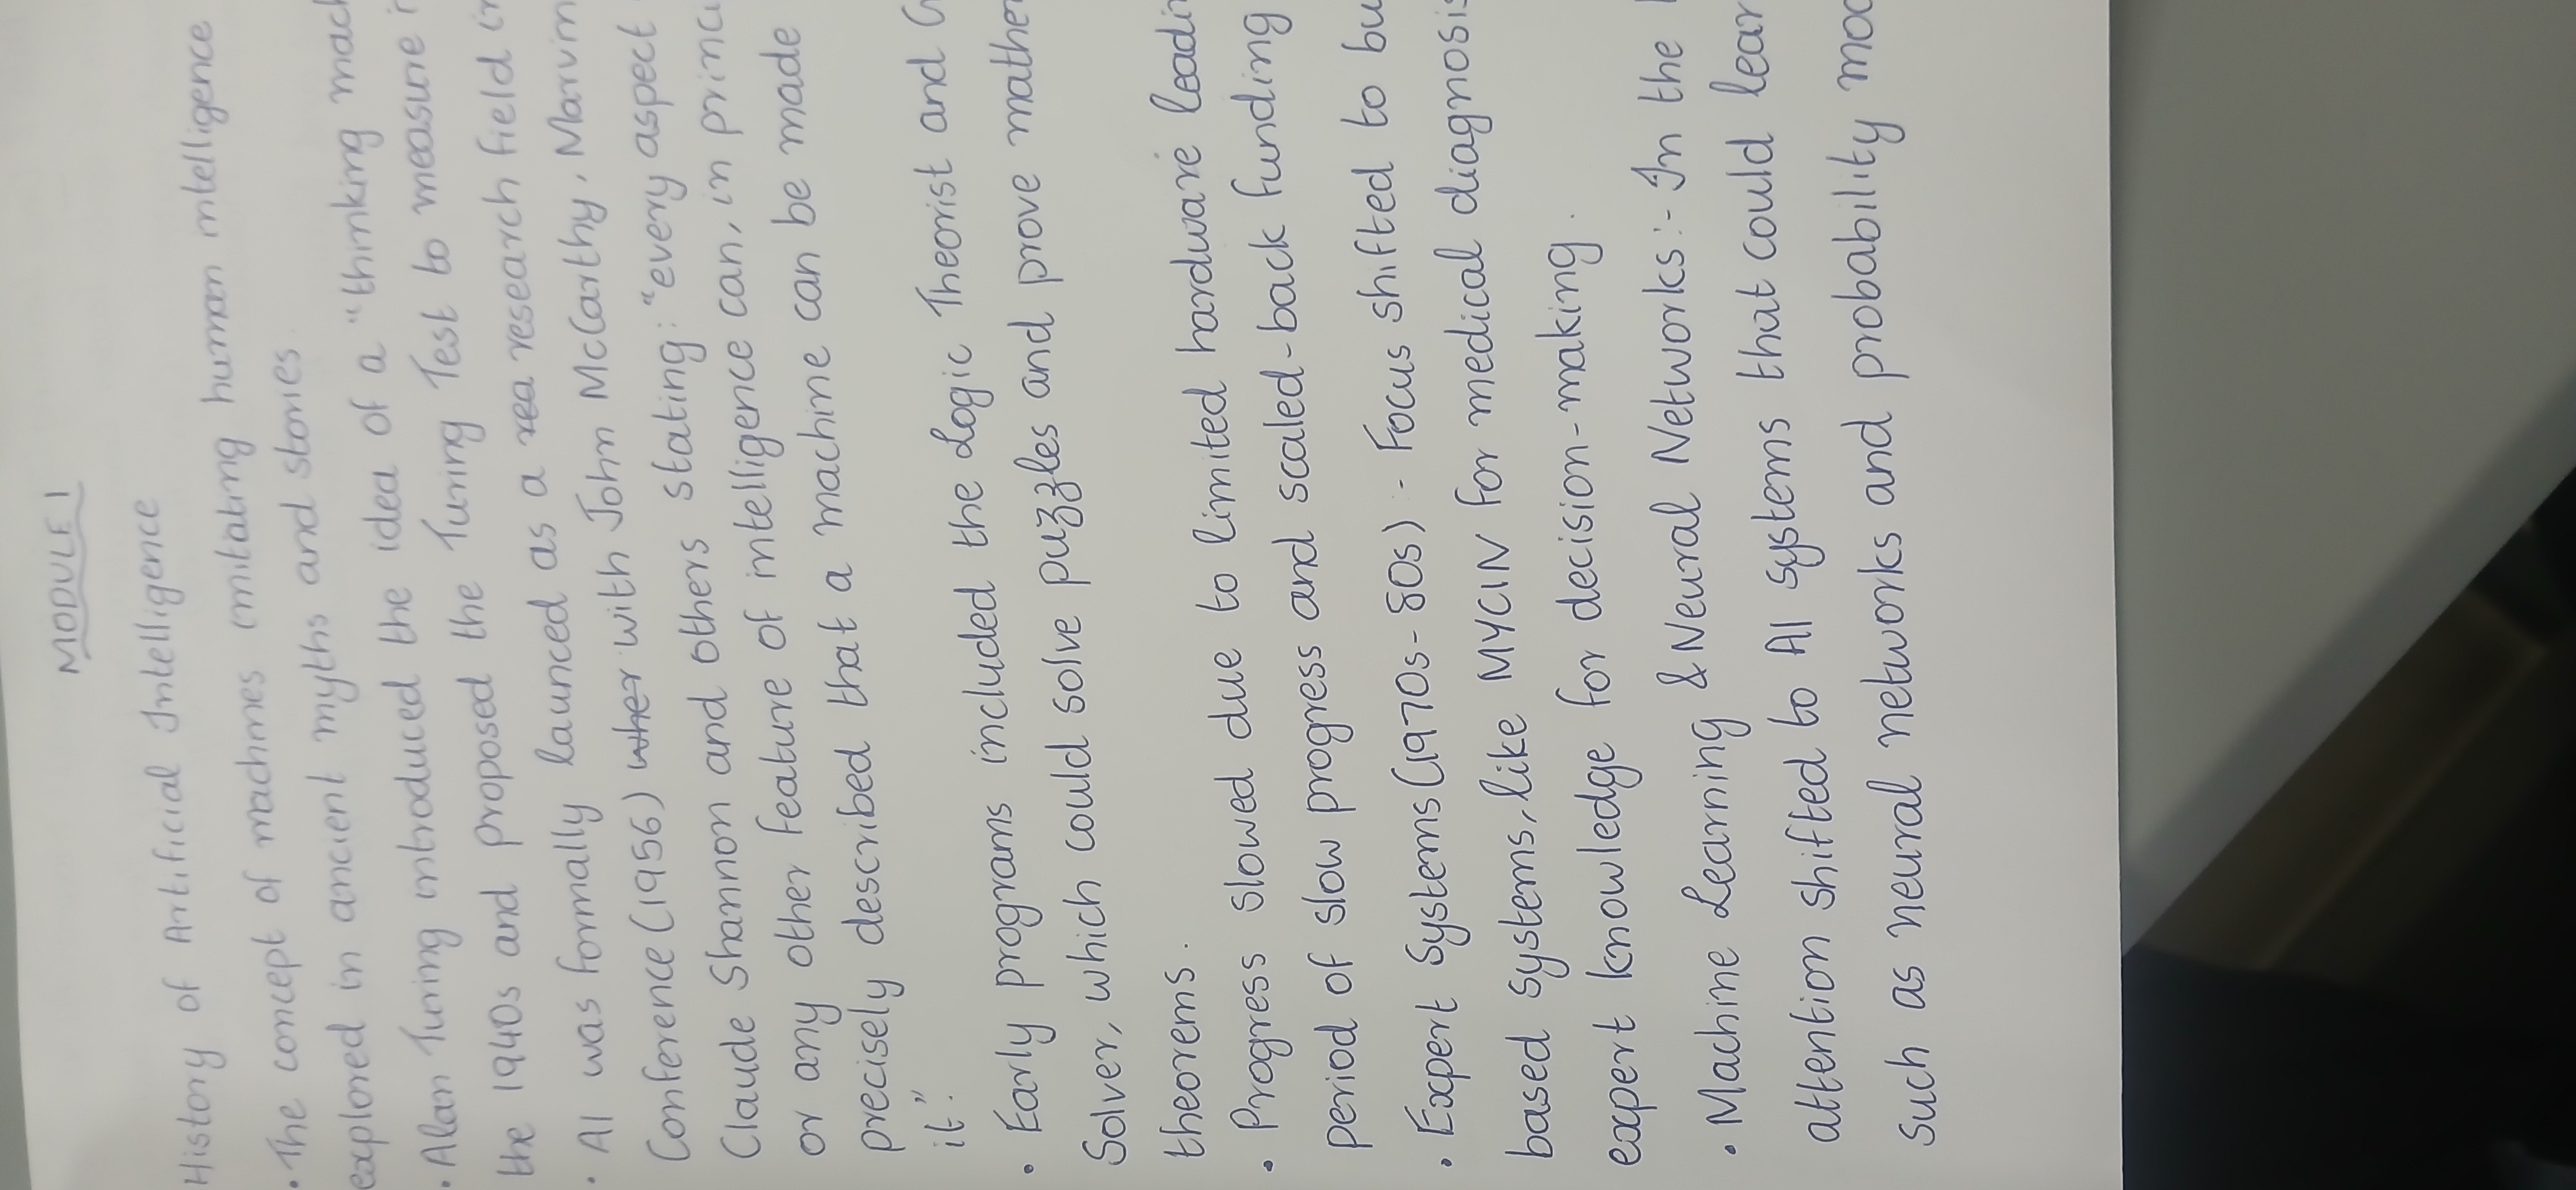 MODULE 1
History of Artificial Intelligence
• The concept of machines imitating human intelligence
explored in ancient myths and stories.
• Alan Turing introduced the idea of a "thinking mach
the 1940s and proposed the Turing Test to measure i
• AI was formally launced as a research field in
Conference (1956) with John McCarthy, Marvin
Claude Shannon and others stating: "every aspect
or any other feature of intelligence can, in princi
precisely described that a machine can be made
it".
• Early programs included the Logic Theorist and G
Solver, which could solve puzzles and prove mathe
theorems.
• Progress slowed due to limited hardware leadin
period of slow progress and scaled-back funding
• Expert Systems (1970s-80s) :- Focus shifted to bu
based systems, like MYCIN for medical diagnosis
expert knowledge for decision-making.
• Machine Learning & Neural Networks :- In the 1
attention shifted to AI systems that could lear
such as neural networks and probability mod